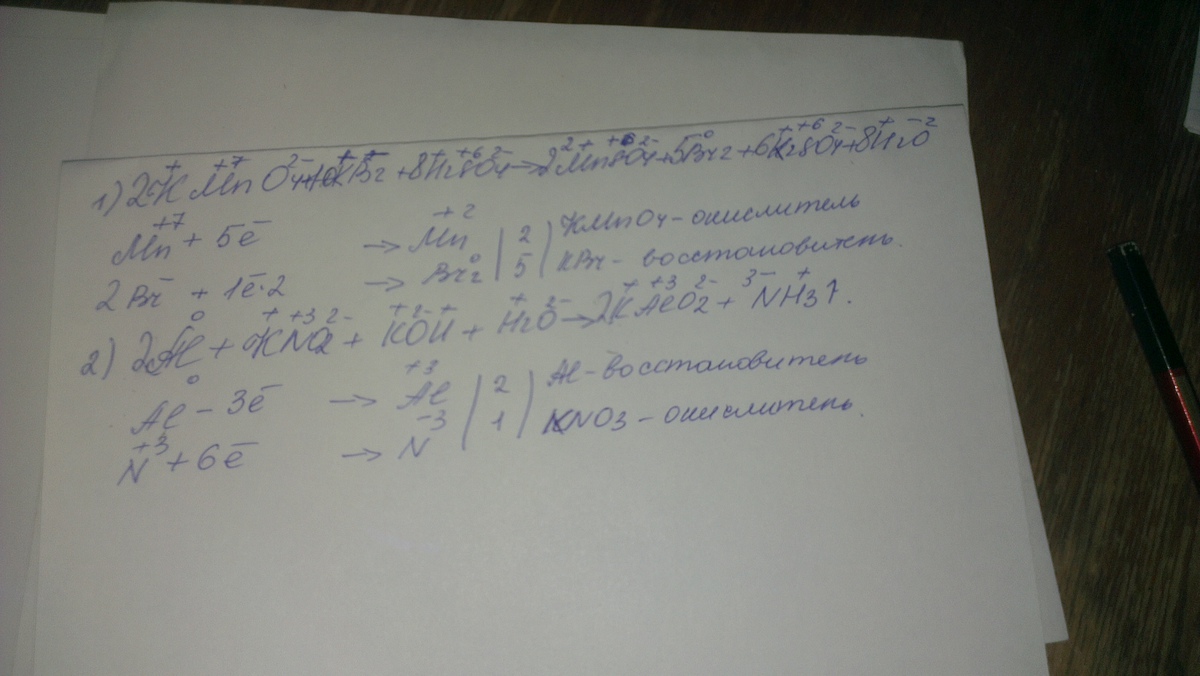 1) 2KMnO4 + 10KBr + 8H2SO4 → 2MnSO4 + 5Br2 + 6K2SO4 + 8H2O
Mn+7 + 5e− → Mn+2 | 2 | KMnO4 - окислитель
2Br− + 1e−·2 → Br20 | 5 | KBr - восстановитель.
2) 2Al + KNO2 + KOH + H2O → 2KAlO2 + NH3↑.
Al0 - 3e− → Al+3 | 2 | Al - восстановитель
N+3 + 6e− → N−3 | 1 | KNO3 - окислитель.